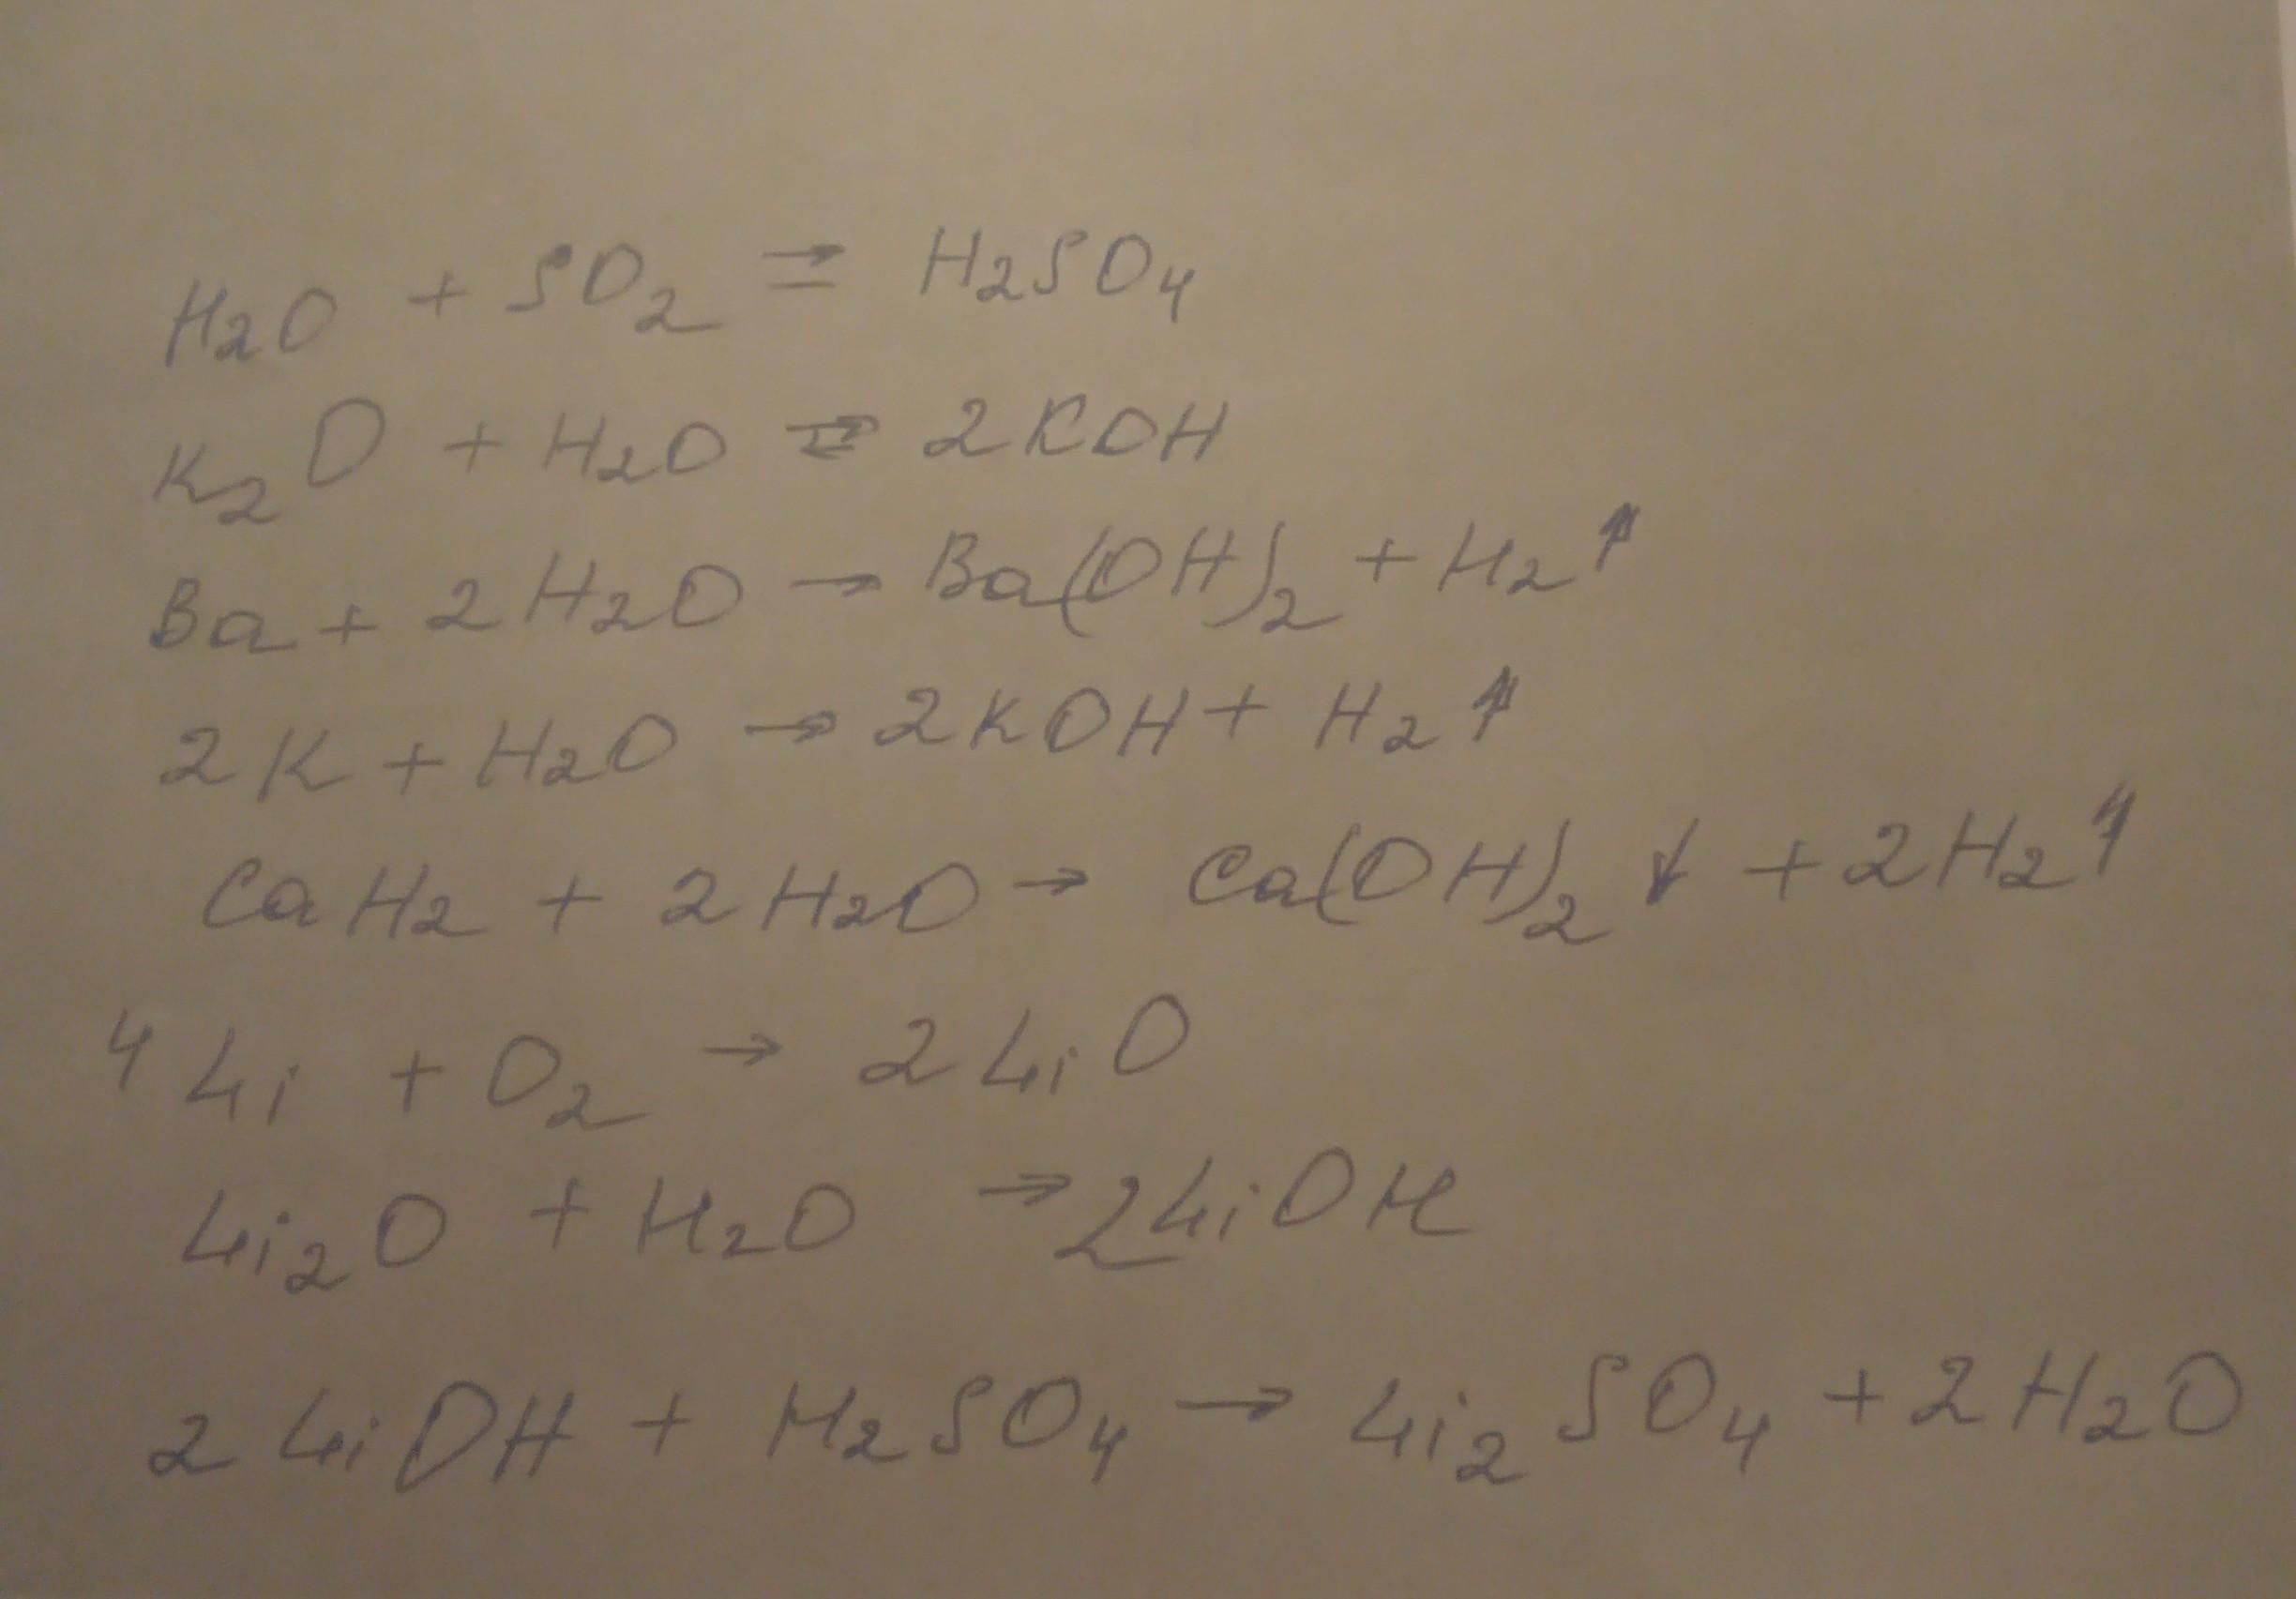 H₂O + SO₂ ⇌ H₂SO₄
K₂O + H₂O ⇌ 2KOH
Ba + 2H₂O → Ba(OH)₂ + H₂↑
2K + H₂O → 2KOH + H₂↑
CaH₂ + 2H₂O → Ca(OH)₂↓ + 2H₂↑
4Li + O₂ → 2LiO
Li₂O + H₂O → 2LiOH
2LiOH + H₂SO₄ → Li₂SO₄ + 2H₂O